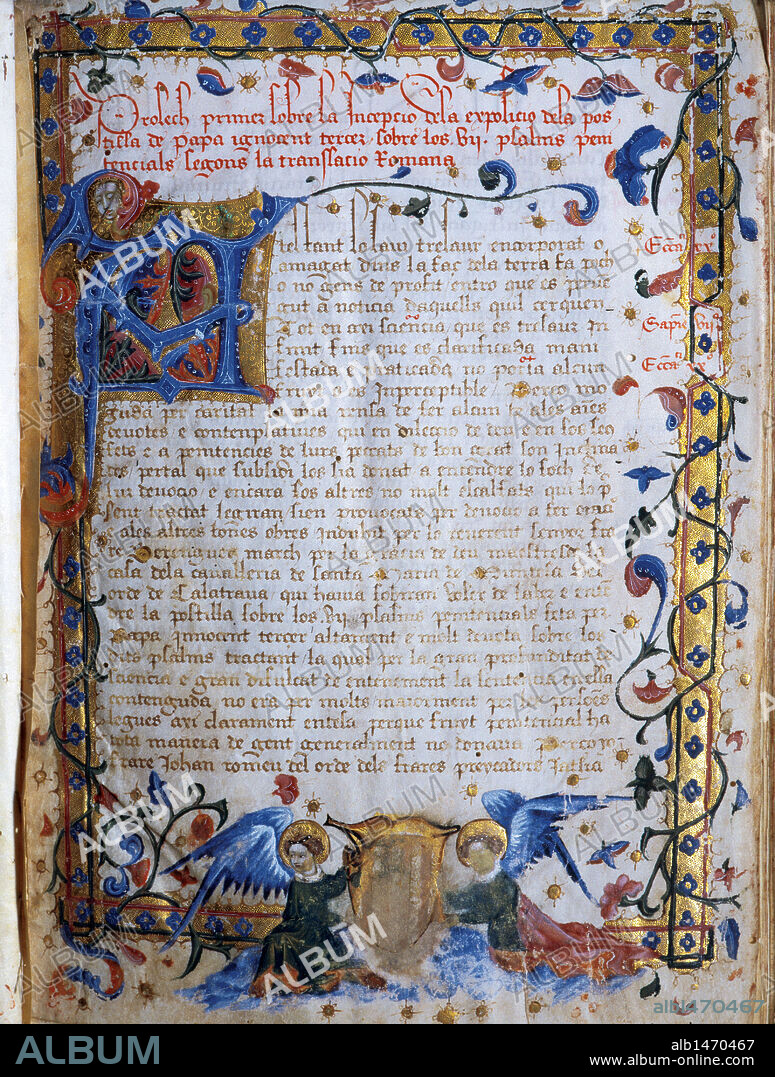 Prolech primer sobre la Incepcio dela expolicio dela pos
tilla de Papa ignocent tercer sobre los vij. psalms peni
tencials segons la translacio Romana
tresaur encorporat o
amagat dins la faç dela terra fa poch
o no gens de profit entro que es prve
gut a noticia daquells quil cerquen
sciencia que es tresaur In
finit fins que es clarificada mani
festada praticada no porta alcun
fruyt Inpreceptible Perço mo
guda per caritat la mia pensa de fer alcun
e contemplatius qui en dileccio de deu
sets e a penitencies de lurs peccats de bon
per tal que subsidi los sia donat a encendre lo foch de
lur devocio e encara los altres no molt escalfats qui lo p
sent tractat legiran sien provocats per devocio a fer
tals altres bones obres Induhit per lo reverent senyor fra
re Berenguer march per la gracia de deu maestre de la
casa dela cavalleria de Santa Maria de Muntesa del
orde de Calatrava qui havia sobiran voler de saber e enten
dre la postilla sobre los vij. psalms penitencials feta per
Papa Innocent tercer altament e molt devota sobre los
dits psalms tractant la qual per la gran profunditat
sciencia e gran de enteniment la
contenguda no era per molts maiorment per persones
legues axi clarament entesa perque fruyt penitencial ha
tota manera de gent generalment no donava Perço yo
frare Johan romeu del orde dels frares preycadors
Ecca. xx.
Sapie. vij.
Ecca. x
ALBUM
alb1470467
ALBUM
alb1470467
www.album-online.com